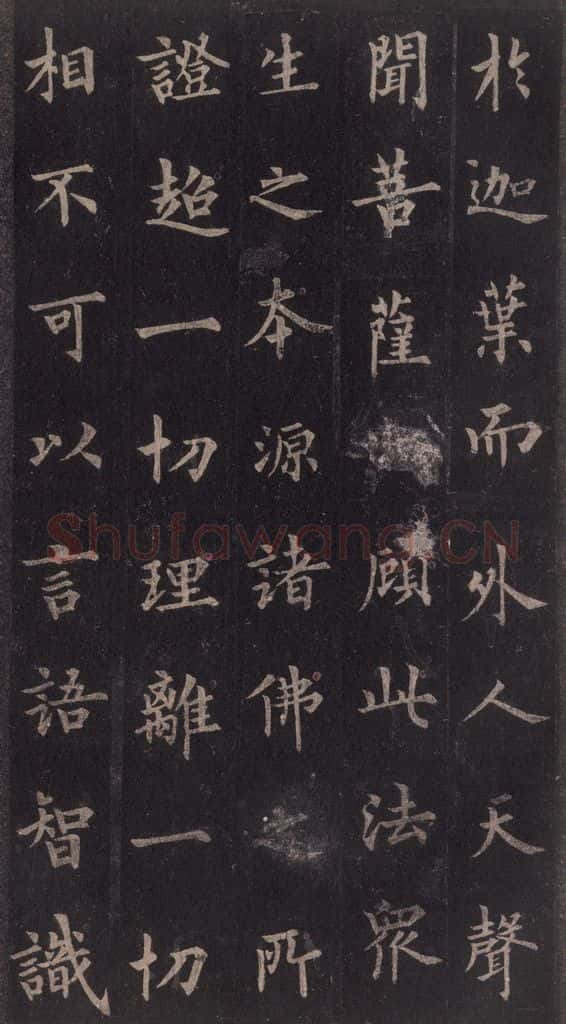 於迦葉而外人天聲
聞菩薩顧此法眾
生之本源諸佛所
證超一切理離一切
相不可以言語智識
Shufawang.CN